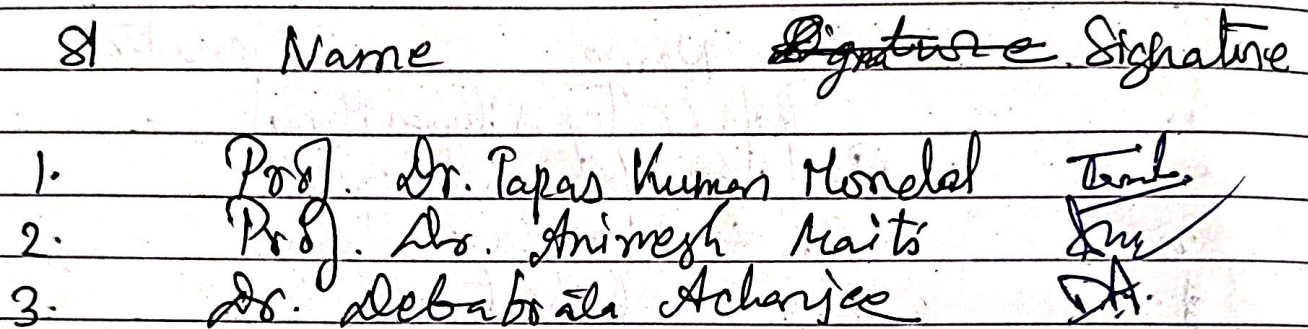 Sl Name Signature
1. Prof. Dr. Tapas Kumar Mondal
2. Prof. Dr. Animesh Maiti
3. Dr. Debabrata Acharjee D.A.